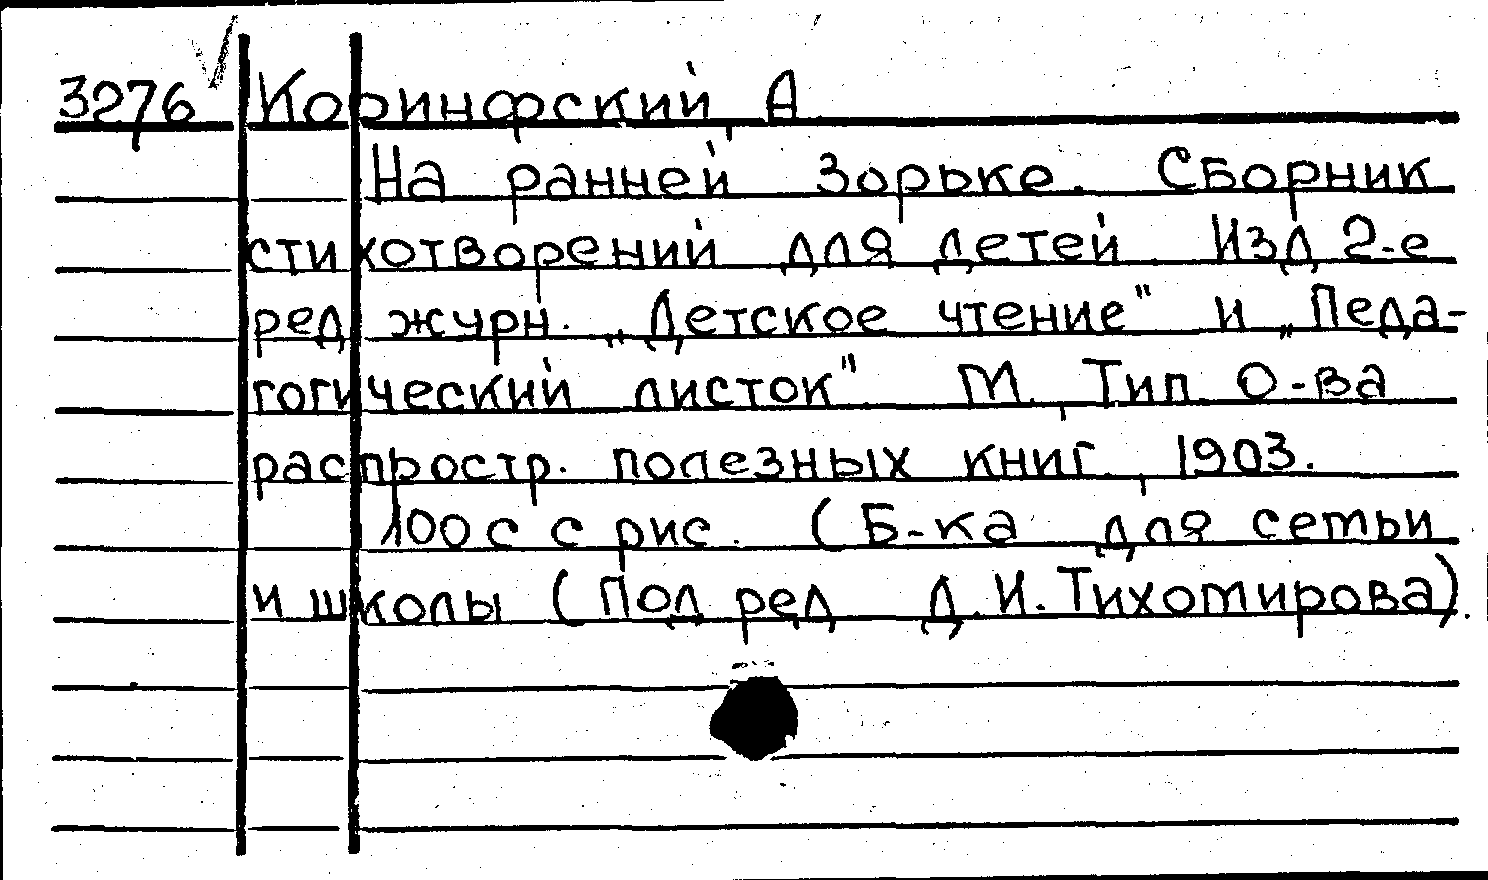 3276 Коринфский, А.
На ранней зорьке. Сборник
стихотворений для детей. Изд 2-е
ред. журн. „Детское чтение" и „Педа-
гогический листок". М., Тип. О-ва
распростр. полезных книг, 1903.
100 с с рис. (Б-ка для сетьи
и школы (Под ред Д.И.Тихомирова).